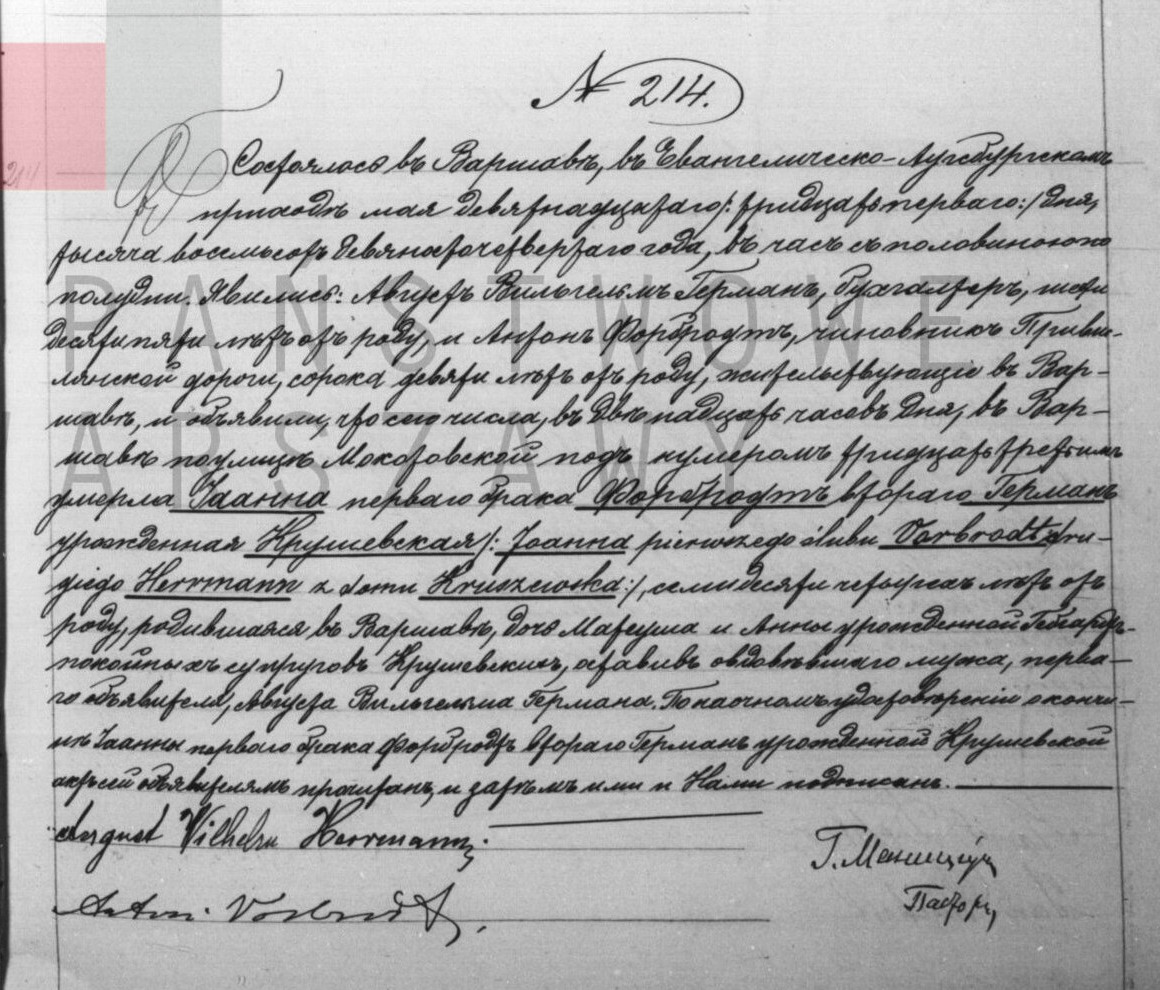 № 214.
Состоялось въ Варшавѣ, въ Евангелическо-Аугсбургскомъ
приходѣ мая девятнадцатаго /: тридцать перваго :/ дня,
тысяча восемьсотъ девяносто четвертаго года, въ часъ съ половиною по
полудни. Явились: Августъ Вильгельмъ Германъ, бухгалтеръ, шести
десяти пяти лѣтъ отъ роду, и Антонъ Форбродтъ, чиновникъ Привис-
лянской дороги, сорока девяти лѣтъ отъ роду, жительствующіе въ Вар-
шавѣ, и объявили, что сего числа, въ двѣнадцать часовъ дня, въ Вар-
шавѣ по улицѣ Мокотовской подъ нумеромъ тридцать третьимъ
умерла Іоанна перваго брака Форбродтъ втораго Германъ
урожденная Крушевская /: Joanna pierwszego ślubu Vorbrodt dru-
giego Herrmann z domu Kruszewska :/, семидесяти четырехъ лѣтъ отъ
роду, родившаяся въ Варшавѣ, дочь Матеуша и Анны урожденной
покойныхъ супруговъ Крушевскихъ, оставивъ овдовѣвшаго мужа, перва-
го объявителя, Августа Вильгельма Германа. По наочномъ удостовѣреніи о кончи-
нѣ Іоанны перваго брака Форбродтъ втораго Германъ урожденной Крушевской
актъ сей объявителямъ прочитанъ, и затѣмъ ими и Нами подписанъ.
August Vilhelm Herrmann
Antoni Vorbrodt
Пасторъ
214
PAŃSTWOWE
ARSZAWY